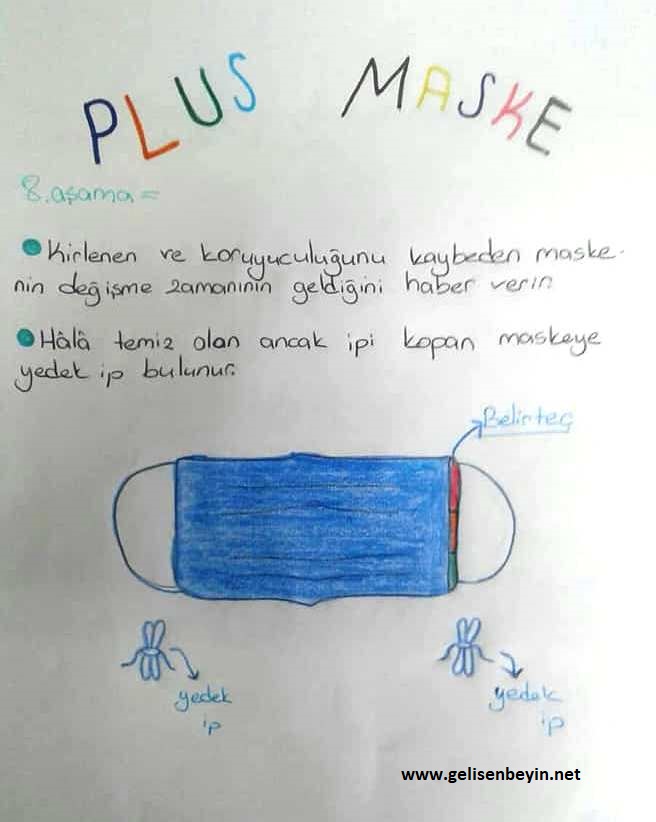 PLUS MASKE
8.aşama=
Kirlenen ve koruyuculuğunu kaybeden maske-
nin değişme zamanının geldiğini haber verir.
Hâlâ temiz olan ancak ipi kopan maskeye
yedek ip bulunur.
Belirteç
yedek
ip
yedek
ip
www.gelisenbeyin.net